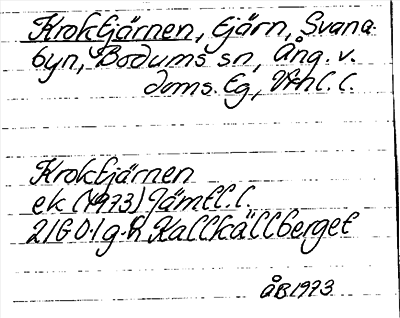 Kroktjärnen, tjärn, Svana-
byn, Bodums sn, Ång. v.
doms. tg, Vtnl. l.
Kroktjärnen
ek (1973) Jämtl. l.
21G 0-1 g-h Kallkällberget
ÅB 1973